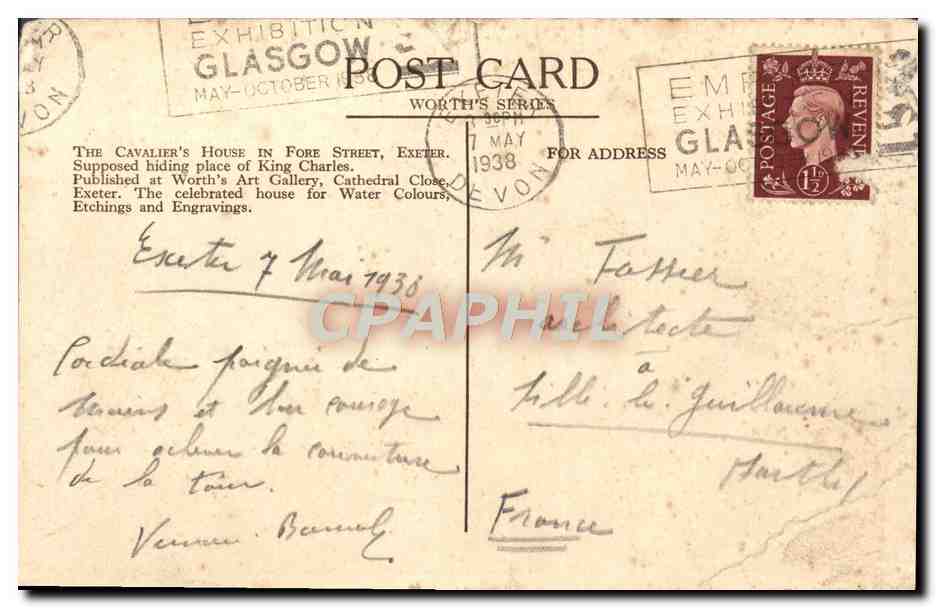 EXHIBITION
GLASGOW
MAY-OCTOBER 1938
POST CARD
WORTH'S SERIES
EXETER
30PM
7 MAY
1938
DEVON
EXHI
GLASGOW
MAY-OC
POSTAGE
REVEN
1½
THE CAVALIER'S HOUSE IN FORE STREET, EXETER.
Supposed hiding place of King Charles.
Published at Worth's Art Gallery, Cathedral Close,
Exeter. The celebrated house for Water Colours,
Etchings and Engravings.
FOR ADDRESS
Exeter 7 Mai 1938
Cordiale poignée de
mains et bon courage
pour achever la couverture
de la tour.
Mr Fassier
architecte
à
Sillé-le-Guillaume
Sarthe
France
CPAPHIL